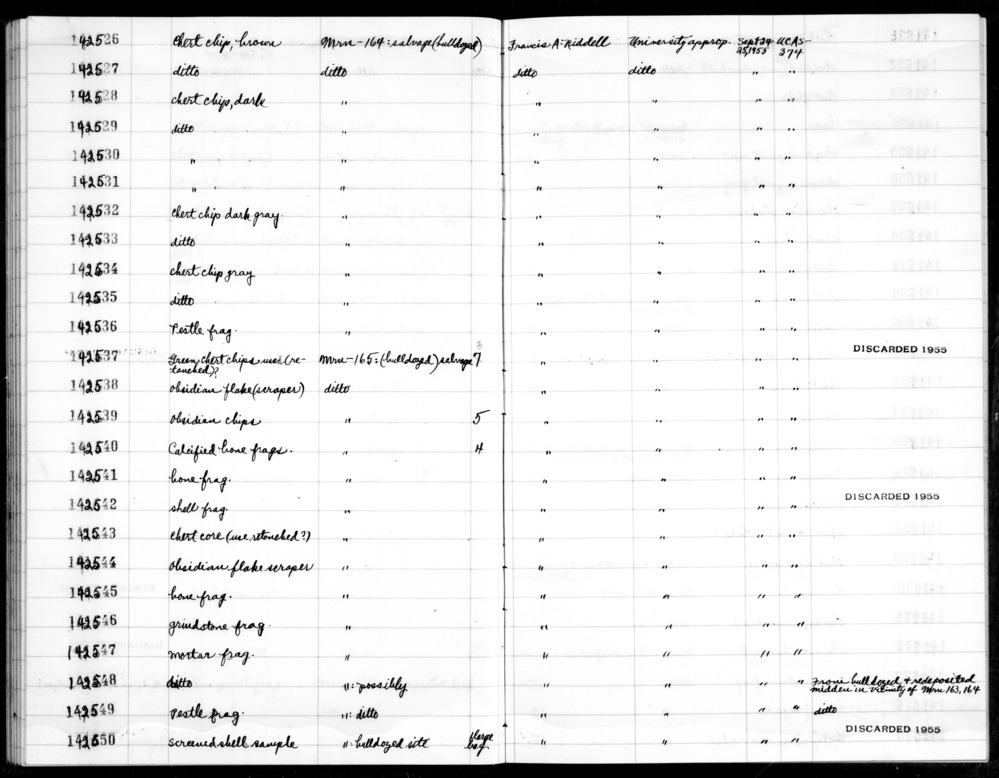 142526 Chert chip, brown Mrn-164: salvage (bulldozed) Francis A. Riddell University approp. Sept 24 25, 1955 UCAS 374
142527 ditto ditto ditto ditto " "
142528 chert chip, dark " " " " "
142529 ditto " " " " "
142530 " " " " " "
142531 " " " " " "
142532 Chert chip dark gray. " " " " "
142533 ditto " " " " "
142534 chert chip gray " " " " "
142535 ditto " " " " "
142536 Pestle frag. " " " " "
142537 Green chert chips-used (re- Mrn-165: (bulldozed) salvage 7 " " " " DISCARDED 1955
touched)?
142538 Obsidian flake (scraper) ditto " " " "
142539 Obsidian chips " 5 " " " "
142540 Calcified bone frags. " 4 " " " "
142541 bone frag. " " " " "
142542 shell frag. " " " " " DISCARDED 1955
142543 chert core (use retouched?) " " " " "
142544 Obsidian flake scraper " " " " "
142545 bone frag. " " " " "
142546 grindstone frag. " " " " "
142547 mortar frag. " " " " "
142548 ditto ": possibly " " " " From bulldozed + redeposited
midden in vicinity of Mrn 163, 164
142549 Pestle frag. ": ditto " " " " ditto
142550 Screened shell sample ": bulldozed site 1 large bag. " " " " DISCARDED 1955